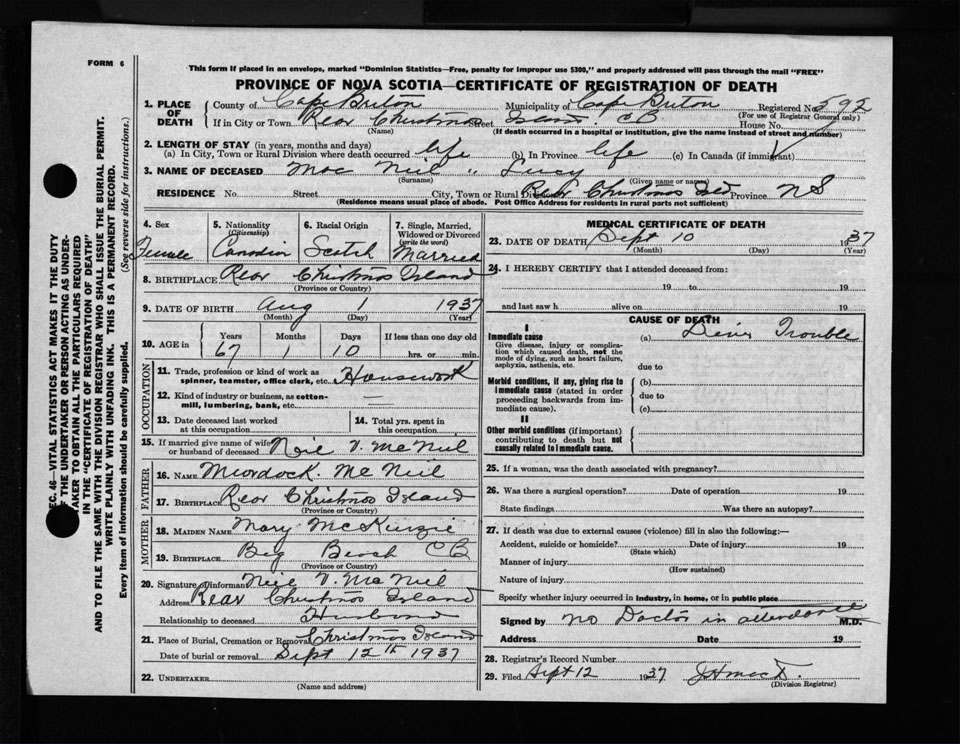 FORM 6
This form if placed in an envelope, marked "Dominion Statistics—Free, penalty for improper use $300," and properly addressed will pass through the mail "FREE"
PROVINCE OF NOVA SCOTIA—CERTIFICATE OF REGISTRATION OF DEATH
1. PLACE OF DEATH
County of Cape Breton Municipality of Cape Breton Registered No. 592
(For use of Registrar General only)
If in City or Town Rear Christmas Street Island CB House No.
(Name) (If death occurred in a hospital or institution, give the name instead of street and number)
2. LENGTH OF STAY (in years, months and days)
(a) In City, Town or Rural Division where death occurred life (b) In Province life (c) In Canada (if immigrant)
3. NAME OF DECEASED Mac Neil " Lucy
(Surname) (Given name or names)
RESIDENCE No. Street City, Town or Rural Division Rear Christmas Isld Province NS
(Residence means usual place of abode. Post Office Address for residents in rural parts not sufficient)
4. Sex Female
5. Nationality (Citizenship) Canadian
6. Racial Origin Scotch
7. Single, Married, Widowed or Divorced (write the word) Married
8. BIRTHPLACE Rear Christmas Island
(Province or Country)
9. DATE OF BIRTH Aug 1 1937
(Month) (Day) (Year)
10. AGE in Years Months Days If less than one day old
67 1 10 hrs. or min.
OCCUPATION
11. Trade, profession or kind of work as spinner, teamster, office clerk, etc. Housework
12. Kind of industry or business, as cotton-mill, lumbering, bank, etc. —
13. Date deceased last worked at this occupation
14. Total yrs. spent in this occupation
15. If married give name of wife or husband of deceased Neil V. McNeil
FATHER
16. Name Murdock. McNeil
17. Birthplace Rear Christmas Island
(Province or Country)
MOTHER
18. Maiden Name Mary McKinzie
19. Birthplace Beg Beach CB
(Province or Country)
20. Signature of informant Neil V. McNeil
Address Rear Christmas Island
Relationship to deceased Husband
21. Place of Burial, Cremation or Removal Christmas Island
Date of burial or removal Sept 12th 1937
22. UNDERTAKER
(Name and address)
MEDICAL CERTIFICATE OF DEATH
23. DATE OF DEATH Sept 10 1937
(Month) (Day) (Year)
24. I HEREBY CERTIFY that I attended deceased from:
19 to 19
and last saw h alive on 19
CAUSE OF DEATH
I
Immediate cause (a) Liver Trouble
Give disease, injury or complication which caused death, not the mode of dying, such as heart failure, asphyxia, asthenia, etc.
due to
Morbid conditions, if any, giving rise to immediate cause (stated in order proceeding backwards from immediate cause).
(b)
due to
(c)
II
Other morbid conditions (if important) contributing to death but not causally related to immediate cause.
25. If a woman, was the death associated with pregnancy?
26. Was there a surgical operation? Date of operation 19
State findings Was there an autopsy?
27. If death was due to external causes (violence) fill in also the following:—
Accident, suicide or homicide? Date of injury 19
(State which)
Manner of injury
(How sustained)
Nature of injury
Specify whether injury occurred in industry, in home, or in public place
Signed by no Doctor in attendance M.D.
Address Date 19
28. Registrar's Record Number
29. Filed Sept 12 1937
(Division Registrar)
SEC. 46—VITAL STATISTICS ACT MAKES IT THE DUTY
OF THE UNDERTAKER OR PERSON ACTING AS UNDER-
TAKER TO OBTAIN ALL THE PARTICULARS REQUIRED
IN THE "CERTIFICATE OF REGISTRATION OF DEATH"
AND TO FILE THE SAME WITH THE DIVISION REGISTRAR WHO SHALL ISSUE THE BURIAL PERMIT.
WRITE PLAINLY WITH UNFADING INK. THIS IS A PERMANENT RECORD.
Every item of information should be carefully supplied. (See reverse side for instructions.)